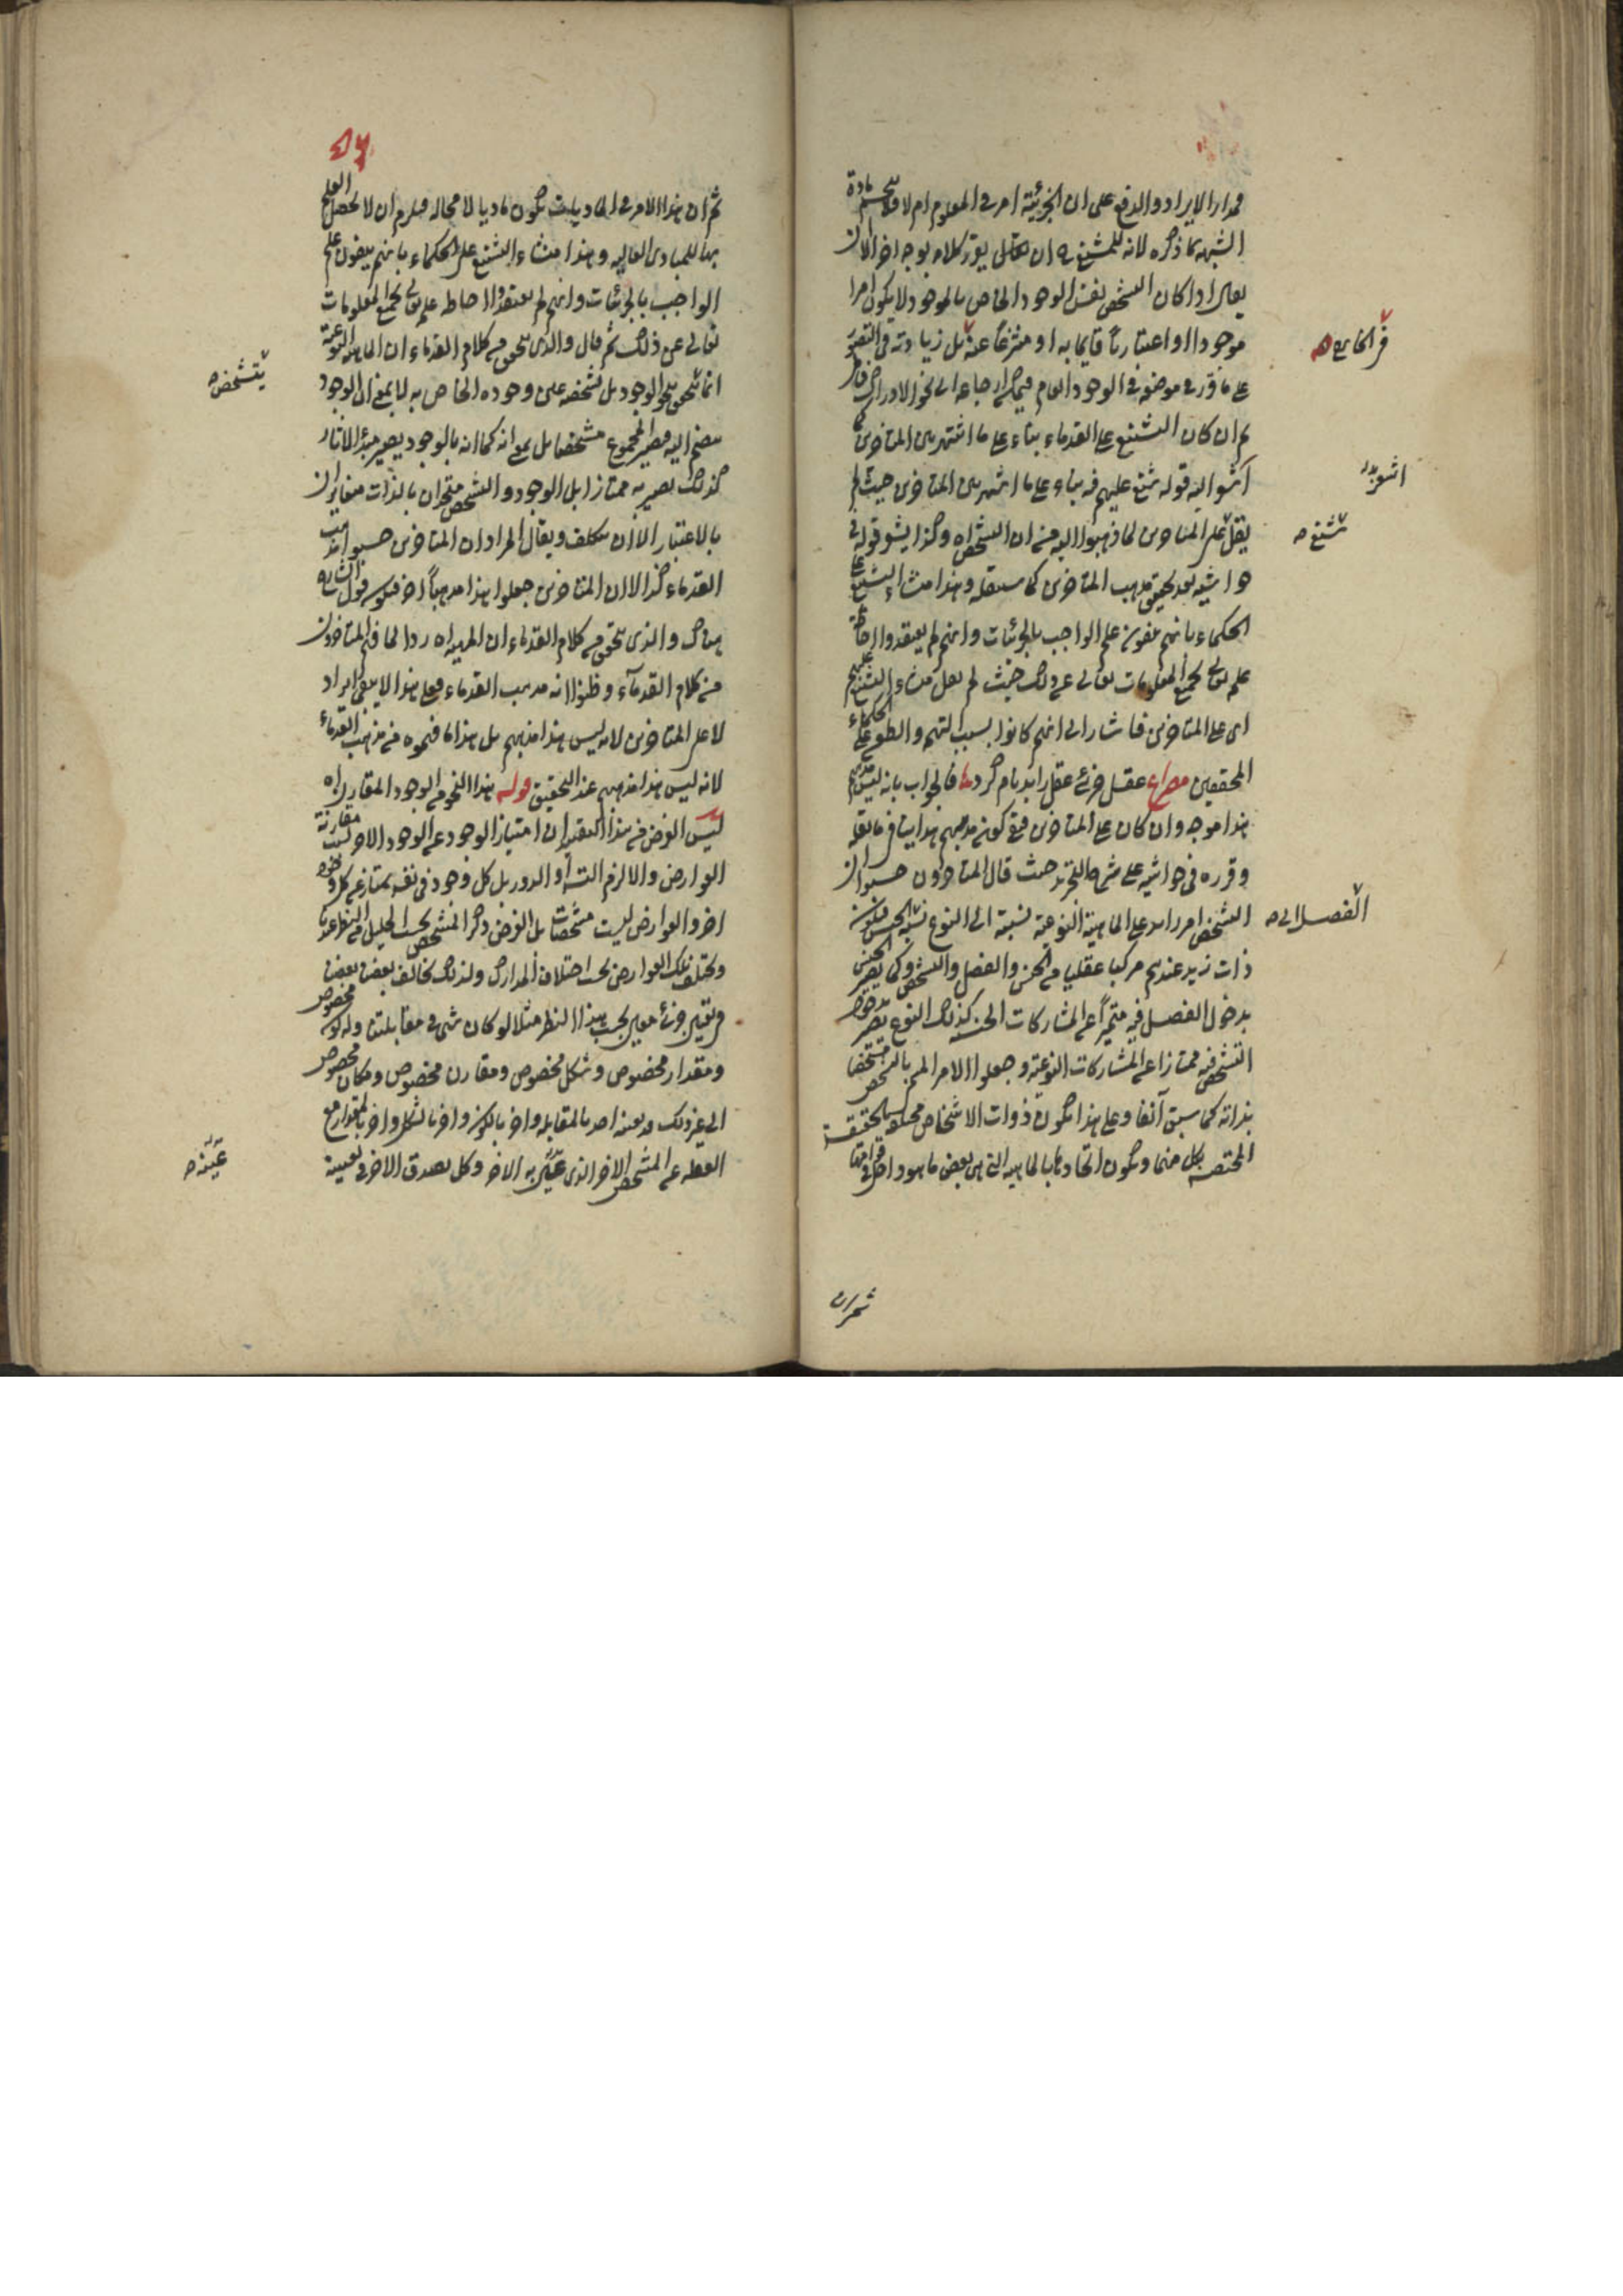 فمدار الايراد والدفع على ان الجزئية امر في المعلوم ام لا فلا ينحسم مادة
الشبهة بما ذكره لانه للمشنع ان يقرر كلامه بوجه اخر الا ان
يقال اذا كان التشخص نفس الوجود الخاص بالموجود لا يكون امرا
موجودا او اعتباريا قايما به او منتزعا عنه بل زيادته في التصور
على ما قرر في موضعه في الوجود العام فيمكن ارجاعه الى نحو الادراك
ثم ان كان التشنيع على القدماء بناء على ما اشتهر بين المتاخرين كما
اشعر اليه قوله شنع عليهم فيه بناء على ما اشتهر بين المتاخرين حيث لم
يقل على المتاخرين لما ذهبوا اليه من ان التشخص اه وكذا يشعر قوله في
حواشيه بعد تحقيق مذهب المتاخرين كما سننقله وهذا منشاء التشنيع على
الحكماء بانهم ينفون علم الواجب بالجزئيات وانهم لم يعتقدوا احاطة
علمه تعالى بجميع المعلومات تعالى عن ذلك حيث لم يقل منشاء التشنيع عليهم
اى على المتاخرين فاشار الى انهم كانوا بسبب التهم والطعن على الحكماء
المحققين مصراع عقل جزئى عقل را بد نام كرد فالجواب بانه ليس مذهبهم
هذا موجه وان كان على المتاخرين فمع كون مذهبهم هذا ينافي ما نقله
وقرره في حواشيه على شرح التجريد حيث قال المتاخرون حسبوا ان
التشخص امر زايد على الماهية النوعية نسبته الى النوع نسبة الجنس فيكون
ذات زيد عندهم مركبا عقليا من الجنس والفصل والتشخص وكما يصير الجنس
بدخول الفصل فيه متميزا عن المشاركات الجنسية كذلك النوع يصير بدخول
التشخص فيه ممتازا عن المشاركات النوعية وجعلوا الامر المسمى بالتشخص متشخصا
بذاته كما سبق آنفا وعلى هذا يكون ذوات الاشخاص مختلفة بالحقيقة
المختصة بكل منها ويكون اتحادها بالماهية التي هى بعض ما هو داخل في
ثم ان
في الخارج صح
اشعر بدل
شنع صح
الفصل الى صح
ثم ان هذا الامر في الماديات يكون ماديا لا محالة فيلزم ان لا يحصل العلم
بها للمبادى العالية وهذا منشاء التشنيع على الحكماء بانهم ينفون علم
الواجب بالجزئيات وانهم لم يعتقدوا احاطة علمه تعالى بجميع المعلومات
تعالى عن ذلك ثم قال والذى يتحقق من كلام القدماء ان الماهية النوعية
انما يتحقق بنحو الوجود بل تشخصه عين وجوده الخاص به لا بمعنى ان الوجود
ينضم اليه فيصير المجموع متشخصا بل بمعنى انه كما انه بالوجود يصير مبدء الاثار
كذلك يصير به ممتازا بل الوجود والتشخص متحدان بالذات متغايران
بالاعتبار الا ان يتكلف ويقال المراد ان المتاخرين حسبوا مذهب
القدماء كذا لا ان المتاخرين جعلوا هذا مذهبا اخر فيكون قول الشارح
هناك والذى يتحقق من كلام القدماء ان الماهية اه ردا لما فهم المتاخرون
من كلام القدمآء وظنوا انه مذهب القدماء فعلى هذا لا يبقى ايراد
لا على المتاخرين لانه ليس هذا مذهبهم بل هذا ما فهموه من مذهب القدماء
لانه ليس هذا مذهبهم عند التحقيق قوله هذا النحو من الوجود المقارن اه
ليس الغرض من هذا التقييد ان امتياز الوجود عن الوجود الاخر ليست مقارنة
العوارض والا لزم التسلسل او الدور بل كل وجود في نفسه ممتاز عن كل وجود
اخر والعوارض ليست مشخصات بل الغرض ذكر المشخص بحسب الجليل من النظر عندنا
ويختلف تلك العوارض بحسب اختلاف المدارك ولذلك يخالف بعضنا بعضا
في تعيين جزئى معين بحسب هذا النظر مثلا لو كان شئ في مقابلتنا وله لون مخصوص
ومقدار مخصوص وشكل مخصوص ومقارن مخصوص ومكان مخصوص
الى غير ذلك قد يعينه احد بالمقابلة واخر بالكون واخر بالشكل واخر بالمقدار مع
الغفلة عن المشخص الاخر الذى عين به الاخر وكل يصدق الاخر في تعيينه
يتشخص صح
عينه صح